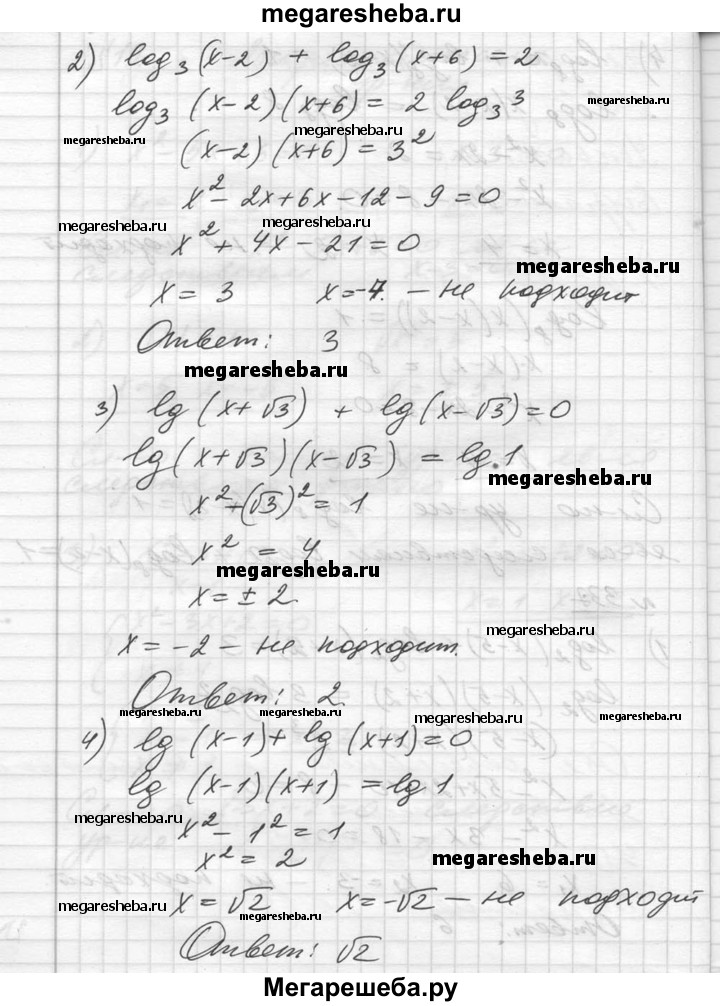 megaresheba.ru
2) log₃(x-2) + log₃(x+6) = 2
log₃ (x-2)(x+6) = 2 log₃ 3
megaresheba.ru
megaresheba.ru
megaresheba.ru
(x-2)(x+6) = 3²
x² - 2x + 6x - 12 - 9 = 0
megaresheba.ru
megaresheba.ru
x² + 4x - 21 = 0
megaresheba.ru
x = 3 x = -7. - не подходит
Ответ: 3
megaresheba.ru
3) lg(x+√3) + lg(x-√3) = 0
lg(x+√3)(x-√3) = lg 1
megaresheba.ru
x² - (√3)² = 1
x² = 4
megaresheba.ru
x = ± 2
x = -2 - не подходит.
megaresheba.ru
Ответ: 2
megaresheba.ru
megaresheba.ru
megaresheba.ru
megaresheba.ru
4) lg (x-1) + lg (x+1) = 0
lg (x-1)(x+1) = lg 1
megaresheba.ru
megaresheba.ru
x² - 1² = 1
x² = 2
megaresheba.ru
megaresheba.ru
x = √2 x = -√2 - не подходит
Ответ: √2
megaresheba.ru
Мегарешеба.ру